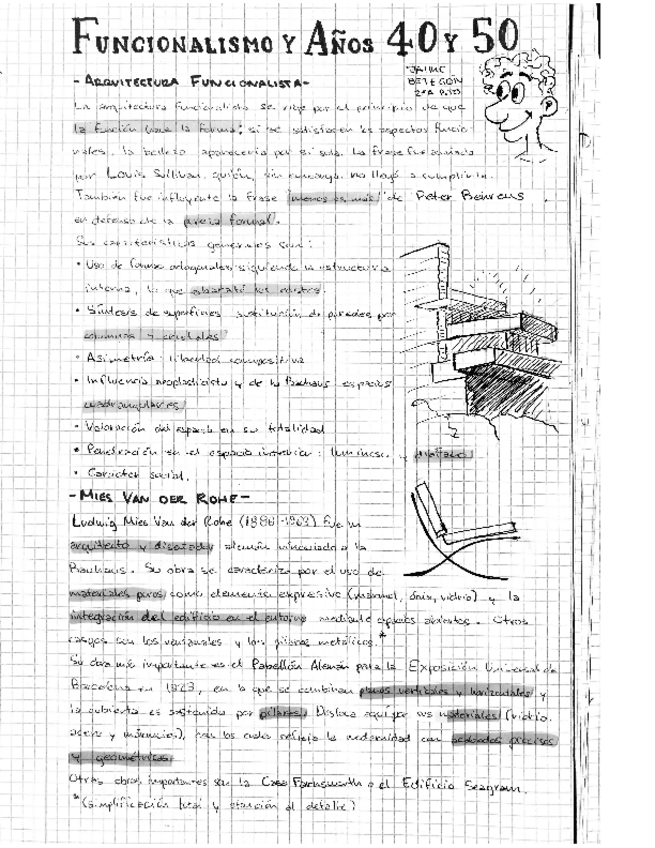 FUNCIONALISMO Y AÑOS 40 Y 50
- ARQUITECTURA FUNCIONALISTA -
JAIME
2ºA
La arquitectura funcionalista se rige por el principio de que
la función hace la forma; si se satisfacen los aspectos funcio-
nales, la belleza aparecería por sí sola. La frase fue
por Louis Sullivan, quién, sin embargo, no llegó a cumplirla.
También fue influyente la frase "menos es más" de Peter Behrens
en defensa de la pureza formal.
Sus características generales son:
• Uso de formas ortogonales siguiendo la estructura
interna, lo que abarató los costes.
• Síntesis de superficies: sustitución de paredes por
columnas y cristales
• Asimetría: libertad compositiva
• Influencia neoplasticista y de la Bauhaus: espacios
cuadrangulares
• Valoración del espacio en su totalidad
• Penetración en el espacio interior: luminoso y diáfano
• Carácter social.
- MIES VAN DER ROHE -
Ludwig Mies Van der Rohe (1886-1969) fue un
arquitecto y diseñador alemán vinculado a la
Bauhaus. Su obra se caracteriza por el uso de
materiales puros como elemento expresivo (mármol, ónix, vidrio) y la
integración del edificio en el entorno mediante espacios abiertos. Otros
rasgos son los ventanales y los pilares metálicos.*
Su obra más importante es el Pabellón Alemán para la Exposición Universal de
Barcelona en 1929, en la que se combinan planos verticales y horizontales y
la cubierta es sostenida por pilares. Destaca aquí por sus materiales (vidrio,
acero y mármol), con los cuales refleja la modernidad con acabados precisos
y geométricos.
Otras obras importantes son la Casa Farnsworth o el Edificio Seagram.
*(simplificación lineal y atención al detalle)